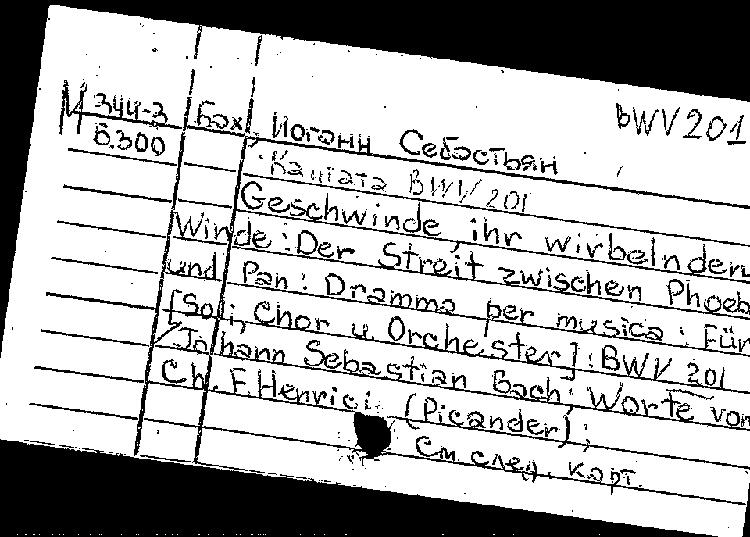 BWV 201
М 344-3 Бах, Иоганн Себастьян
Б.300
Кантата BWV 201
Geschwinde, ihr wirbelnden
Winde: Der Streit zwischen Phoeb
und Pan: Dramma per musica: Für
[Soli, Chor u. Orchester]: BWV 201
/ Johann Sebastian Bach; Worte von
Ch. F. Henrici (Picander);
См. след. карт.